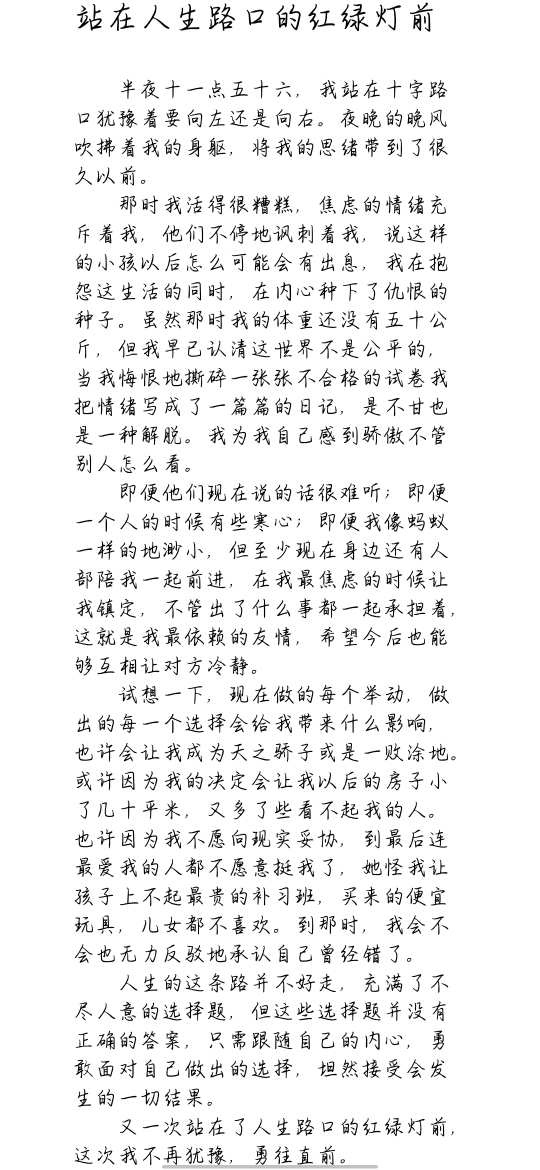 站在人生路口的红绿灯前
半夜十一点五十六，我站在十字路
口犹豫着要向左还是向右。夜晚的晚风
吹拂着我的身躯，将我的思绪带到了很
久以前。
那时我活得很糟糕，焦虑的情绪充
斥着我，他们不停地讽刺着我，说这样
的小孩以后怎么可能会有出息，我在抱
怨这生活的同时，在内心种下了仇恨的
种子。虽然那时我的体重还没有五十公
斤，但我早已认清这世界不是公平的，
当我悔恨地撕碎一张张不合格的试卷我
把情绪写成了一篇篇的日记，是不甘也
是一种解脱。我为我自己感到骄傲不管
别人怎么看。
即便他们现在说的话很难听；即便
一个人的时候有些寒心；即便我像蚂蚁
一样的地渺小，但至少现在身边还有人
部陪我一起前进，在我最焦虑的时候让
我镇定，不管出了什么事都一起承担着，
这就是我最依赖的友情，希望今后也能
够互相让对方冷静。
试想一下，现在做的每个举动，做
出的每一个选择会给我带来什么影响，
也许会让我成为天之骄子或是一败涂地。
或许因为我的决定会让我以后的房子小
了几十平米，又多了些看不起我的人。
也许因为我不愿向现实妥协，到最后连
最爱我的人都不愿意挺我了，她怪我让
孩子上不起最贵的补习班，买来的便宜
玩具，儿女都不喜欢。到那时，我会不
会也无力反驳地承认自己曾经错了。
人生的这条路并不好走，充满了不
尽人意的选择题，但这些选择题并没有
正确的答案，只需跟随自己的内心，勇
敢面对自己做出的选择，坦然接受会发
生的一切结果。
又一次站在了人生路口的红绿灯前，
这次我不再犹豫，勇往直前。